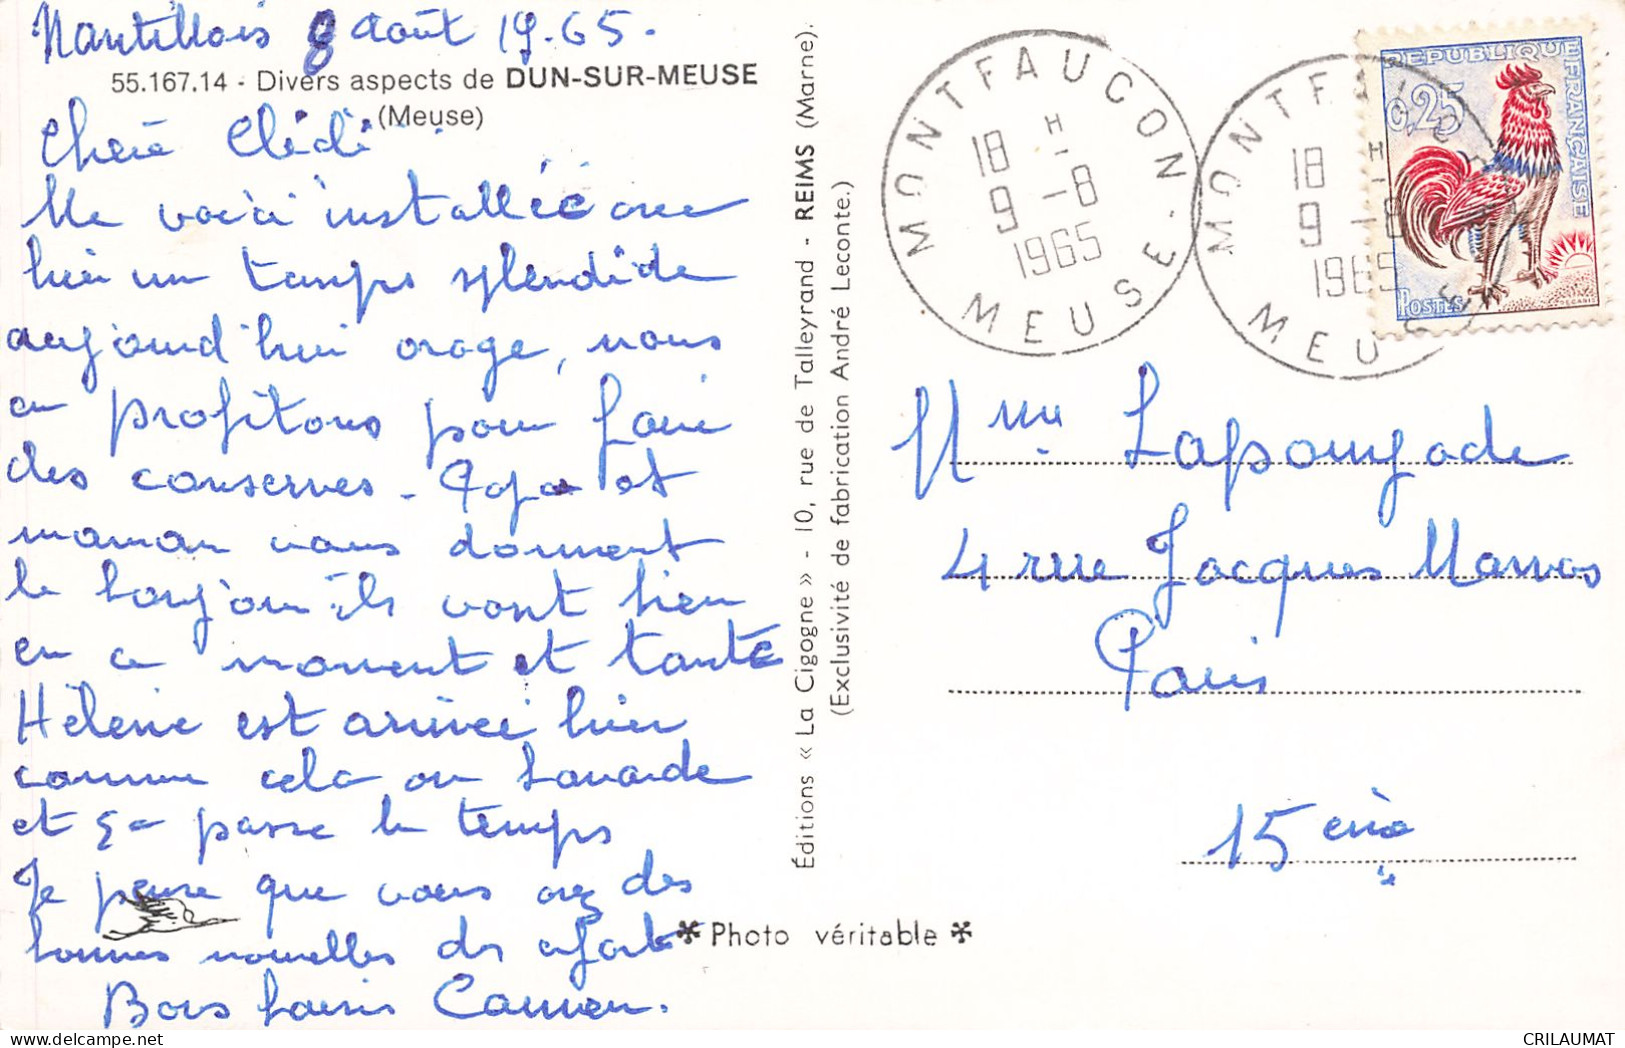 Nantillois 8 Août 19.65.
55.167.14 - Divers aspects de DUN-SUR-MEUSE
(Meuse)
Chère Clédi
Me voici installée avec
hier un temps splendide
aujourd'hui orage, nous
en profitons pour faire
des conserves - Papa et
maman vous donnent
le bonjour ils vont bien
en ce moment et tante
Hélène est arrivée hier
comme cela on bavarde
et ça passe le temps
Je pense que vous avez des
bonnes nouvelles des
Bons baisers Carmen.
Éditions « La Cigogne » - 10, rue de Talleyrand - REIMS (Marne).
(Exclusivité de fabrication André Leconte.)
* Photo véritable *
MONTFAUCON
18 H
9 - 8
1965
MEUSE
MONTFAUCON
18 H
9 - 8
1965
MEUSE
REPUBLIQUE FRANÇAISE
0,25
POSTES
DECARIS
Mme Lapouyade
4 rue Jacques Mawas
Paris
15ème
CRILAUMAT